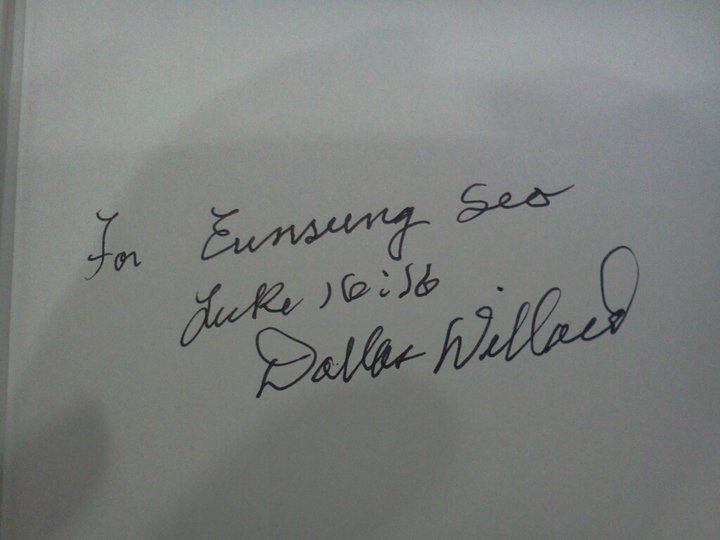 For Eunsung Seo
Luke 16:16
Dallas Willard